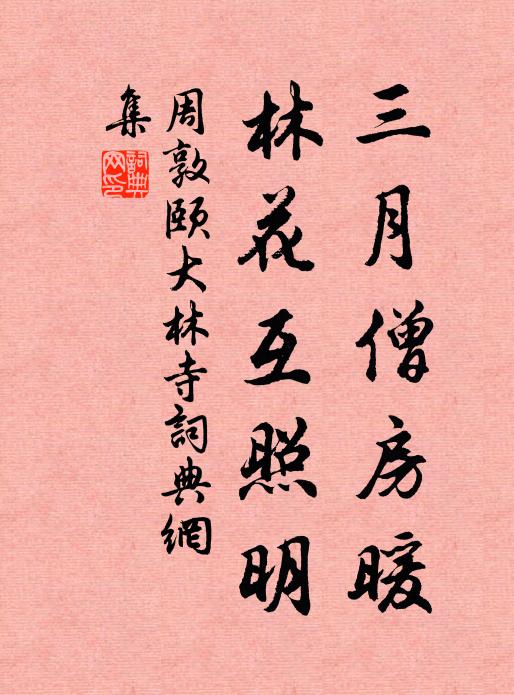 三月僧房暖
林花互照明
周敦頤大林寺詞典網
集
詞典
网印